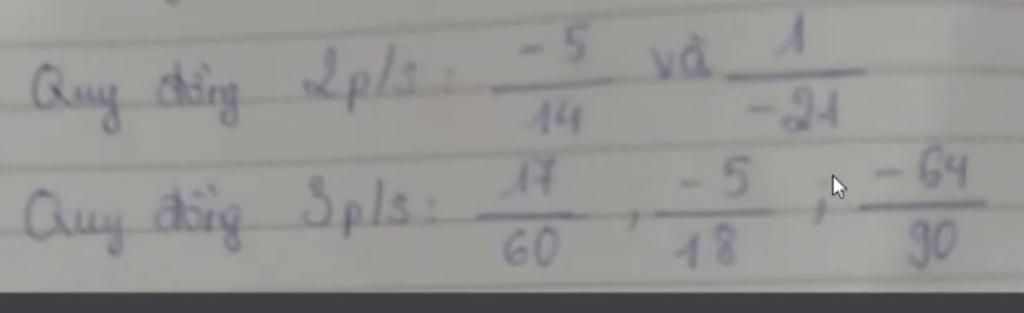 Quy đồng 2p/s: -5/14 và 1/-21
Quy đồng 3p/s: 17/60, -5/18, -64/90